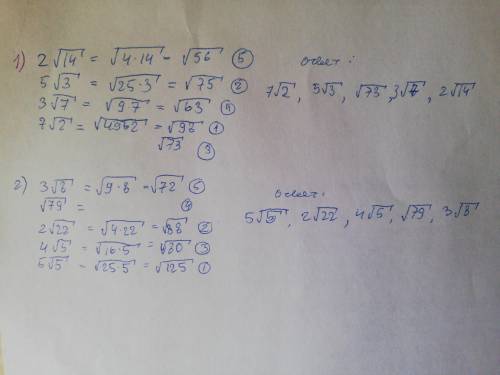 1) 2√14 = √4·14 = √56 (5)
5√3 = √25·3 = √75 (2)
3√7 = √9·7 = √63 (4)
7√2 = √49·2 = √98 (1)
√73 (3)
ответ:
7√2, 5√3, √73, 3√7, 2√14
2) 3√8 = √9·8 = √72 (5)
√79 = (4)
2√22 = √4·22 = √88 (2)
4√5 = √16·5 = √80 (3)
5√5 = √25·5 = √125 (1)
ответ:
5√5, 2√22, 4√5, √79, 3√8